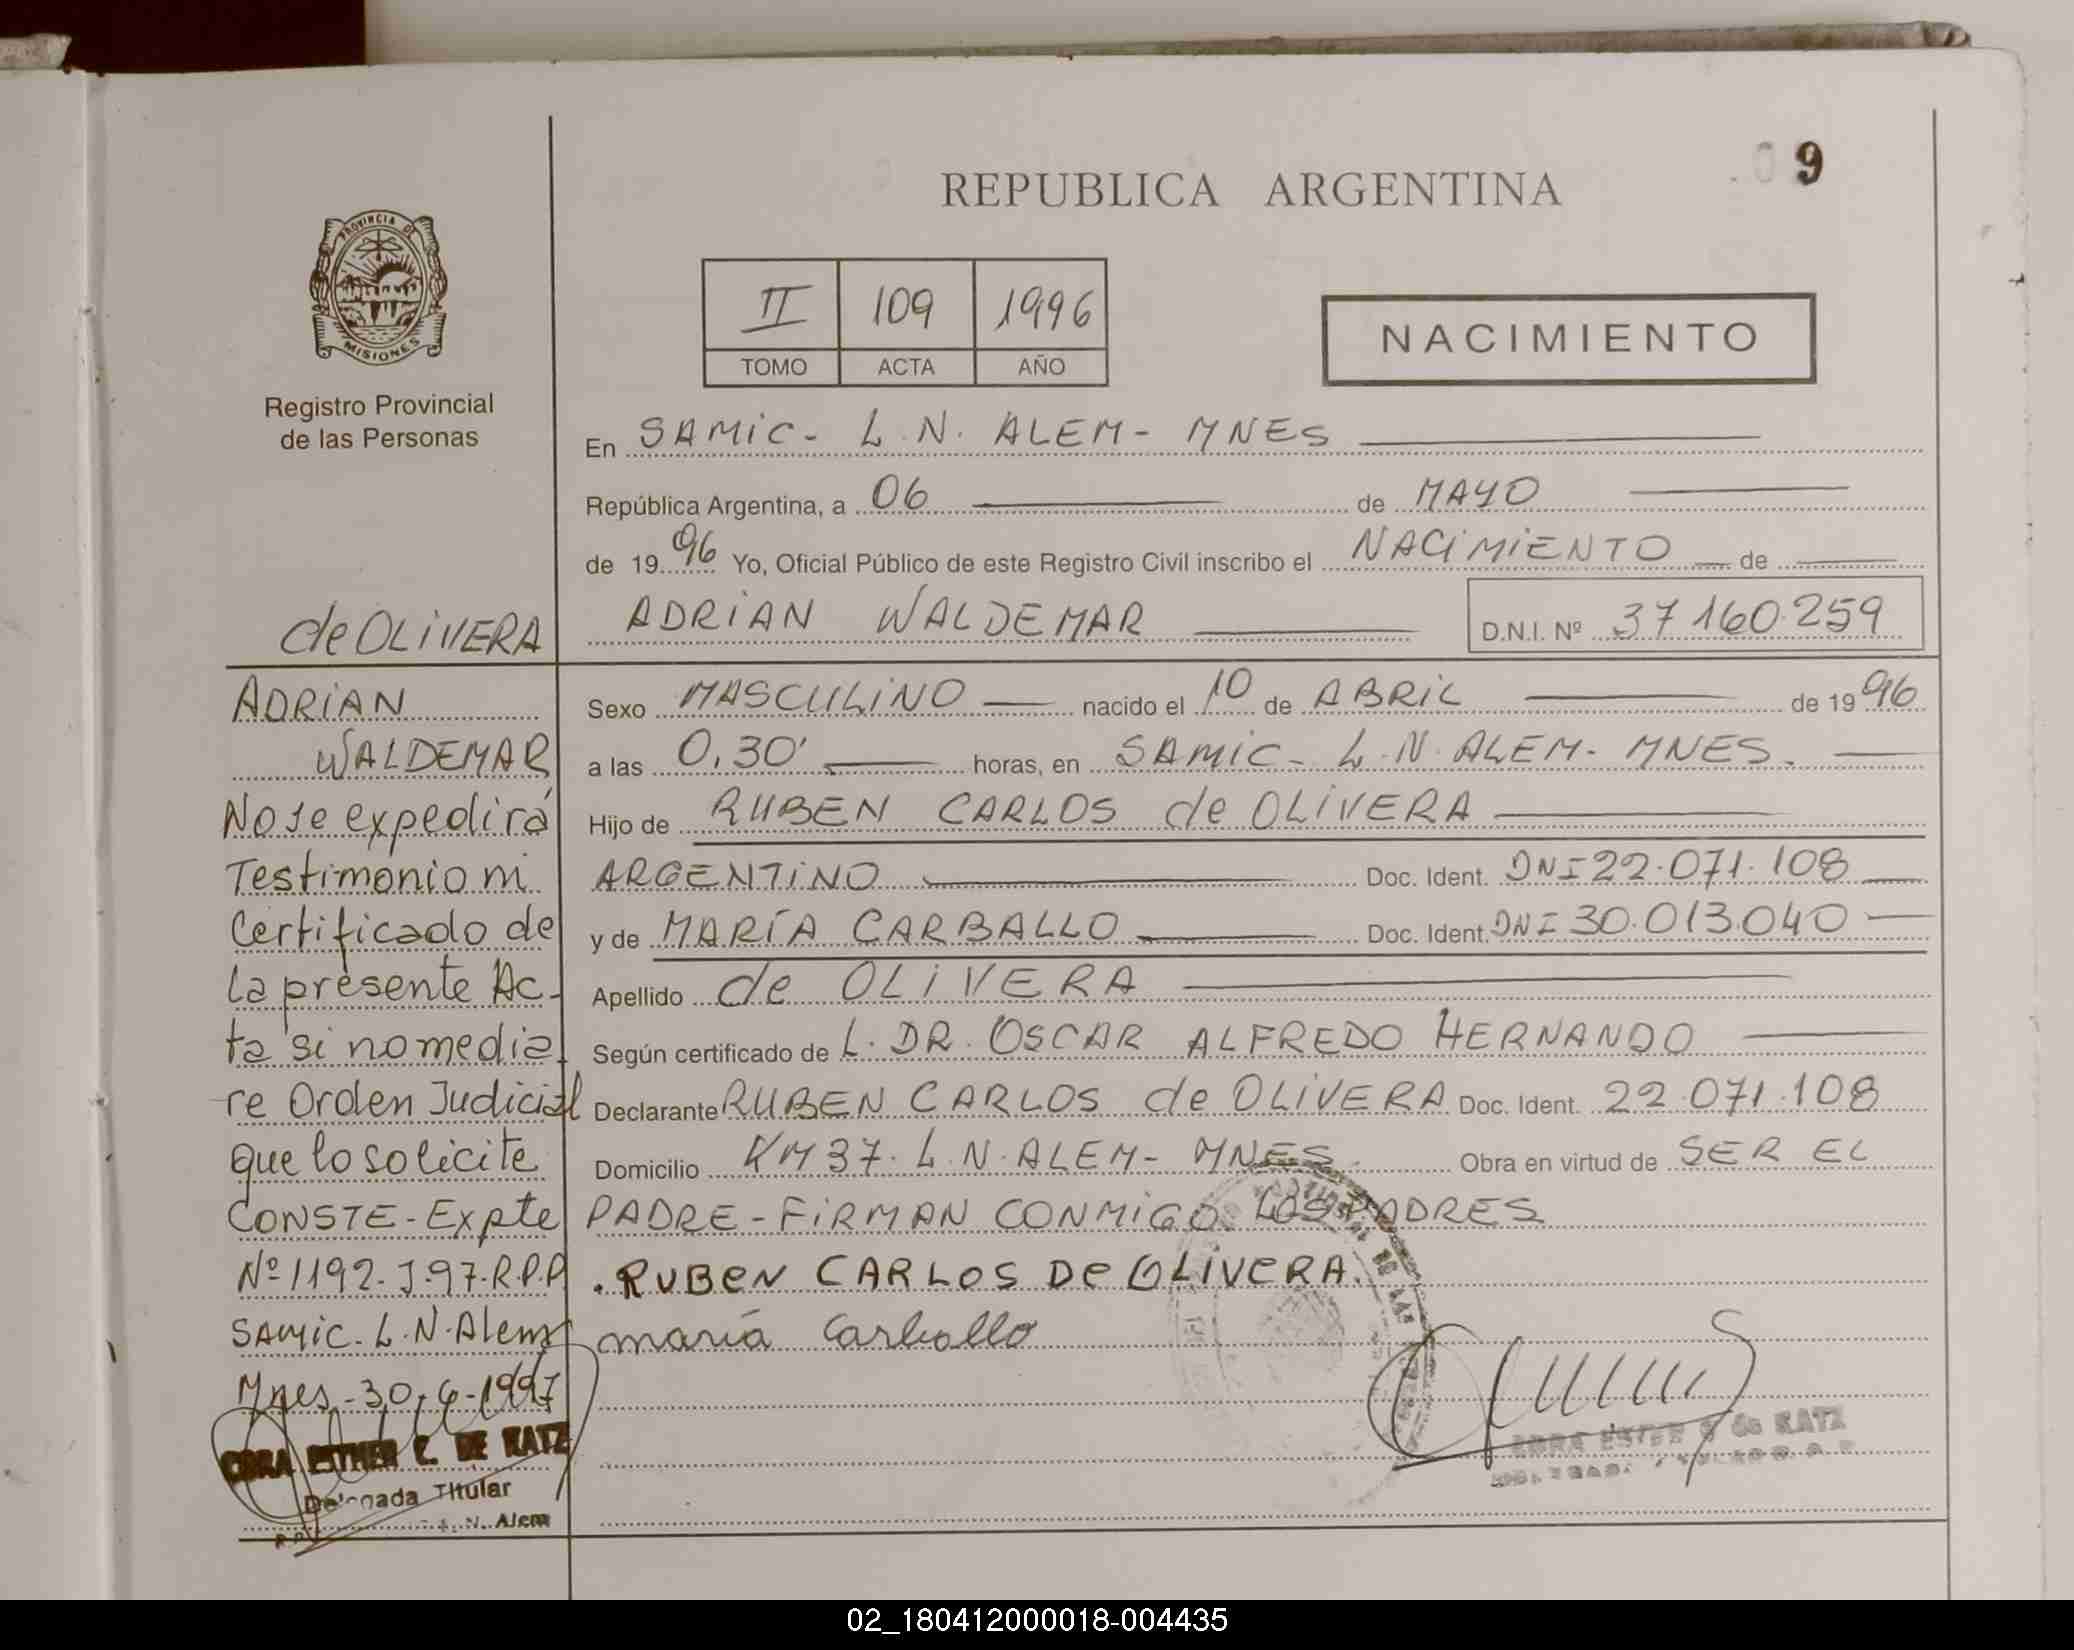 09
REPUBLICA ARGENTINA
PROVINCIA DE
MISIONES
Registro Provincial
de las Personas
II 109 1996
TOMO ACTA AÑO
NACIMIENTO
En SAMIC - L.N. ALEM - MNES
República Argentina, a 06 de MAYO
de 1996 Yo, Oficial Público de este Registro Civil inscribo el NACIMIENTO de
ADRIAN WALDEMAR D.N.I. Nº 37160.259
Sexo MASCULINO nacido el 10 de ABRIL de 1996
a las 0,30' horas, en SAMIC - L.N. ALEM - MNES.
Hijo de RUBEN CARLOS de OLIVERA
ARGENTINO Doc. Ident. DNI 22.071.108
y de MARÍA CARBALLO Doc. Ident. DNI 30.013.040
Apellido de OLIVERA
Según certificado de L. DR. OSCAR ALFREDO HERNANDO
Declarante RUBEN CARLOS de OLIVERA Doc. Ident. 22.071.108
Domicilio KM 37. L.N. ALEM - MNES. Obra en virtud de SER EL
PADRE - FIRMAN CONMIGO LOS PADRES
. RUBEN CARLOS De OLIVERA.
maría Carballo
de OLIVERA
ADRIAN
WALDEMAR
No se expedirá
Testimonio ni
Certificado de
la presente Ac-
ta si no media
re Orden Judicial
que lo solicite
CONSTE - Expte
Nº 1192-J-97-R.P.P
SAMIC. L.N. Alem
Mnes - 30-6-1997
ESTHER DE KATZ
Delegada Titular
Alem
DE KATZ
02_180412000018-004435